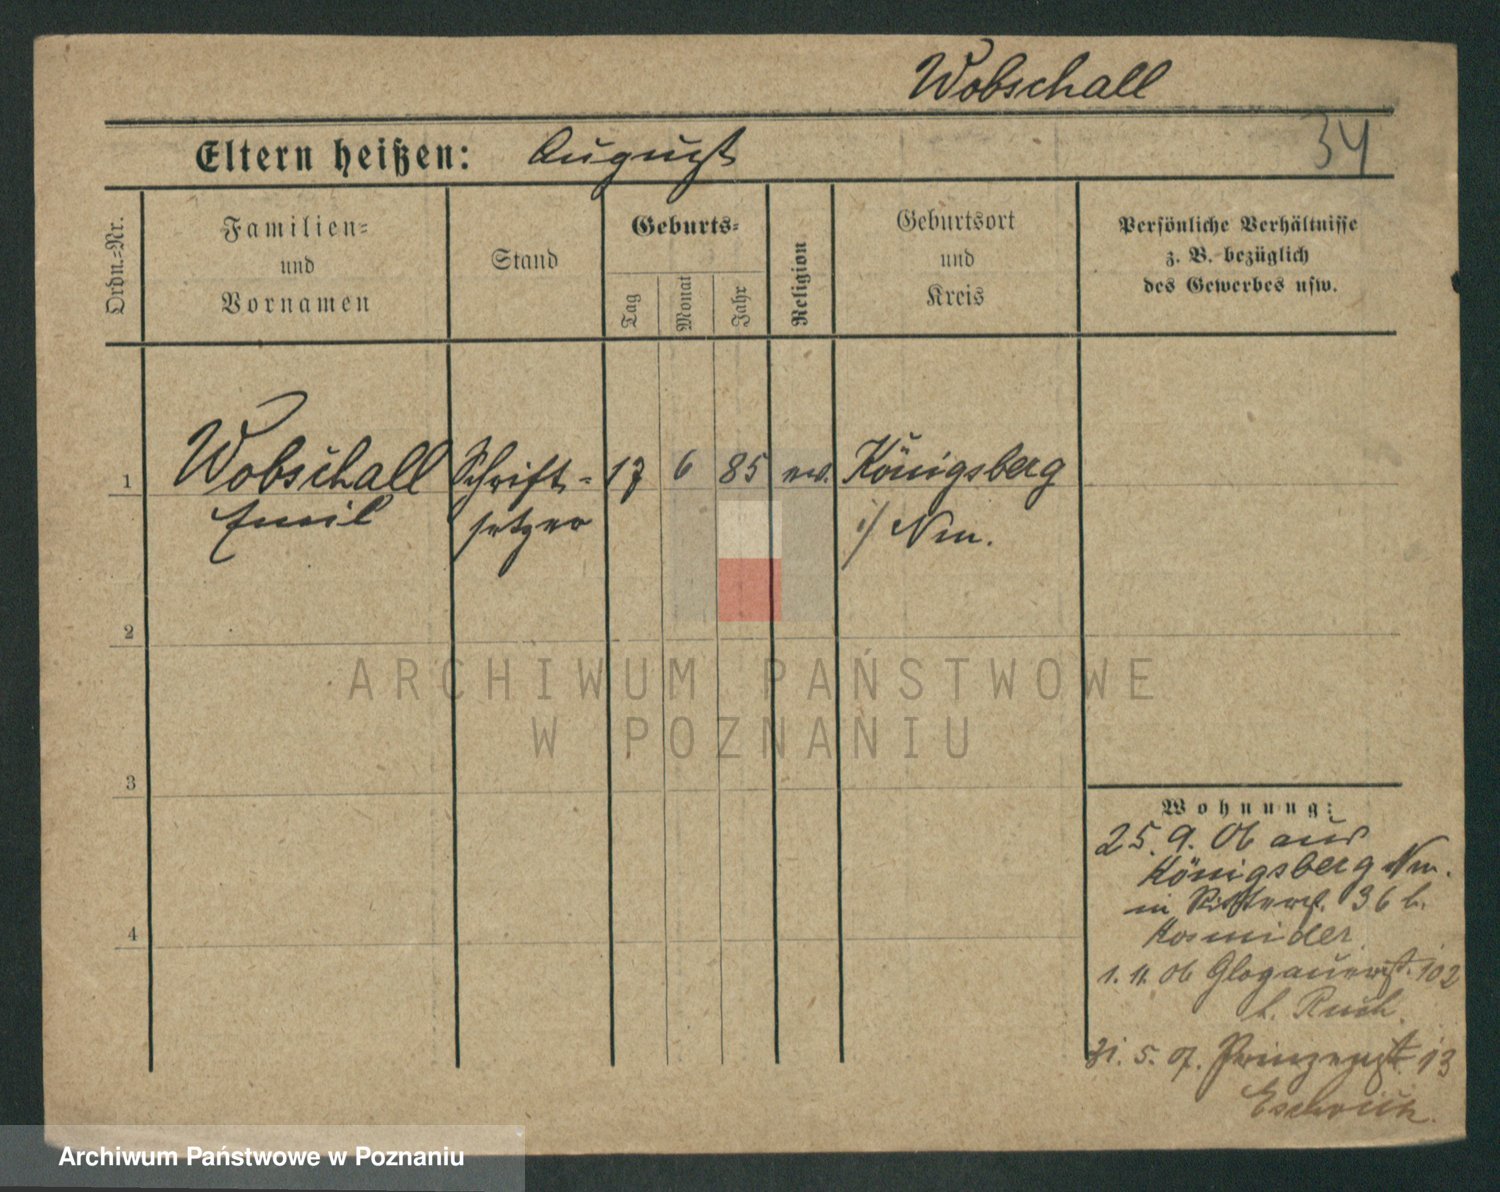 Wobschall
Eltern heißen: August
34
Ordn.-Nr.
Familien-
und
Vornamen
Stand
Geburts-
Tag
Monat
Jahr
Religion
Geburtsort
und
Kreis
Persönliche Verhältnisse
z. B. bezüglich
des Gewerbes usw.
1 Wobschall Schrift- 17 6 85 ev. Königsberg
Emil setzer i/ Nm.
2
3
4
Wohnung:
25. 9. 06 aus
Königsberg Nm.
in 36 b.
Kosmider
1. 11. 06 Glogauerst. 102
b. Ruch.
31. 5. 07. Prinzenst 13
ARCHIWUM PAŃSTWOWE
W POZNANIU
Archiwum Państwowe w Poznaniu